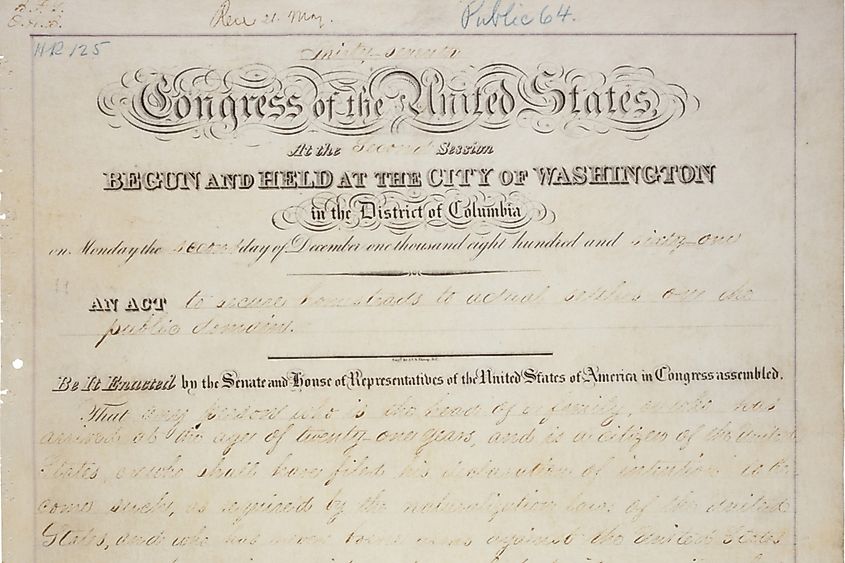 Rec 21. May.
Public 64.
HR 125
Thirty-seventh
Congress of the United States,
At the Second Session
BEGUN AND HELD AT THE CITY OF WASHINGTON
in the District of Columbia
on Monday the second day of December one thousand eight hundred and sixty-one
AN ACT to secure homesteads to actual settlers on the
public domain.
Be It Enacted by the Senate and House of Representatives of the United States of America in Congress assembled.
That any person who is the head of a family, or who has
arrived at the age of twenty-one years, and is a citizen of the United
States, or who shall have filed his declaration of intention to be-
come such, as required by the naturalization laws of the United
States, and who has never borne arms against the United States